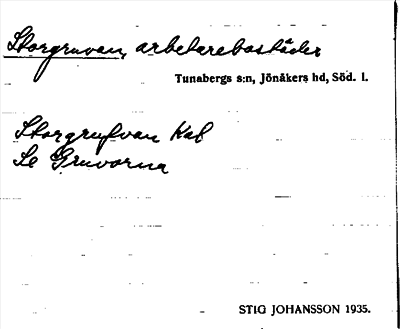 Storgruvan, arbetarebostäder
Tunabergs s:n, Jönåkers hd, Söd. l.
Storgrufvan Kat
Se Gruvorna
STIG JOHANSSON 1935.